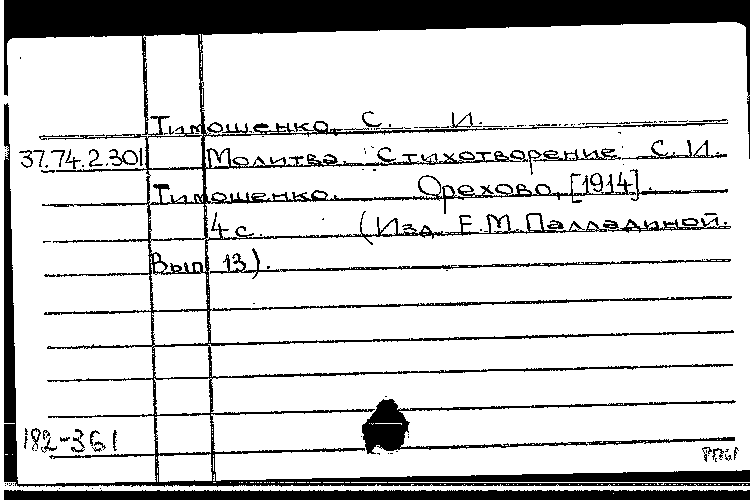 Тимошенко, С. И.
37.74.2.301 Молитва. Стихотворение С.И.
Тимошенко. Орехово, [1914].
4 с. (Изд. Е.М. Палладиной.
Вып. 13).
182-361